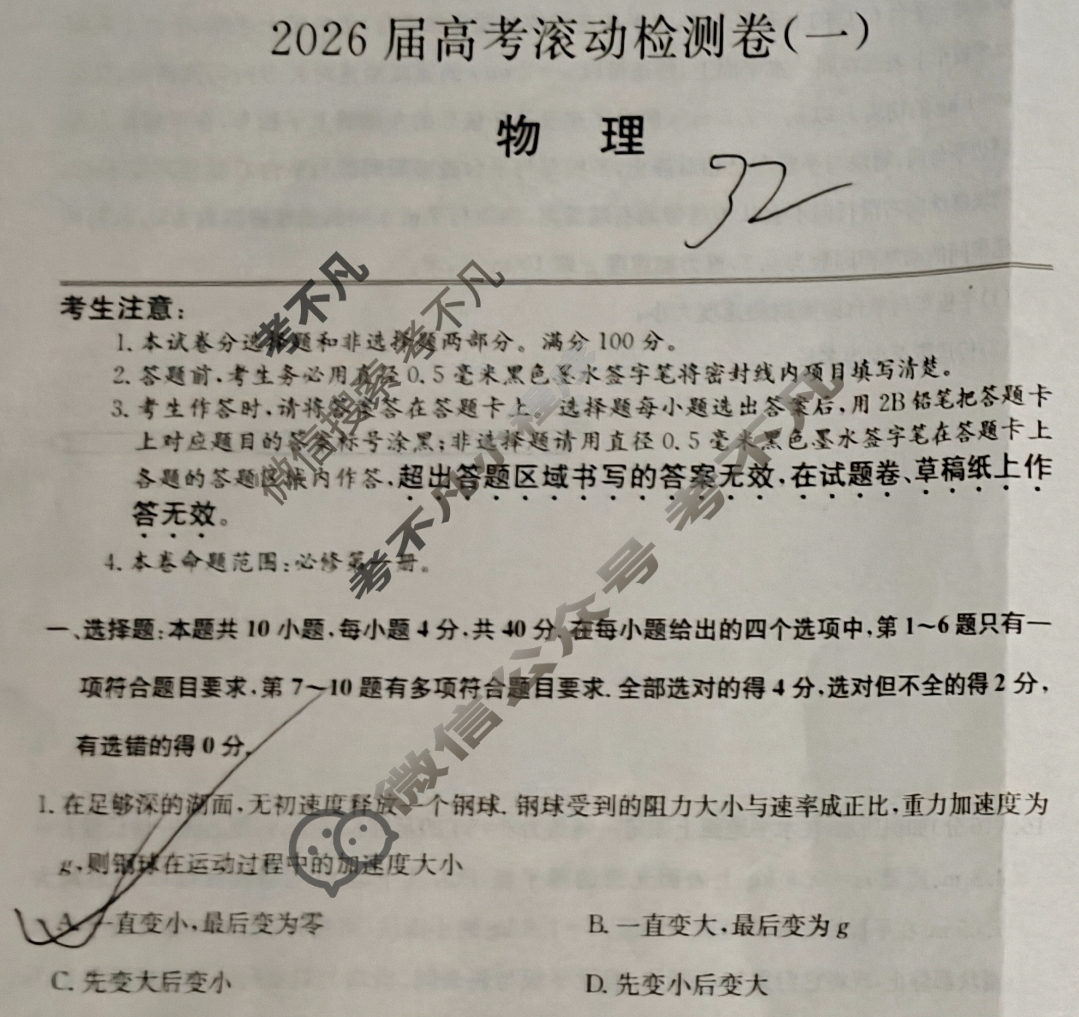 2026届高考滚动检测卷(一)
物 理
32
考生注意:
1.本试卷分选择题和非选择题两部分。满分100分。
2.答题前,考生务必用直径0.5毫米黑色墨水签字笔将密封线内项目填写清楚。
3.考生作答时,请将答案答在答题卡上。选择题每小题选出答案后,用2B铅笔把答题卡
上对应题目的答案标号涂黑;非选择题请用直径0.5毫米黑色墨水签字笔在答题卡上
各题的答题区域内作答,超出答题区域书写的答案无效,在试题卷、草稿纸上作
答无效。
4.本卷命题范围:必修第一册。
一、选择题:本题共10小题,每小题4分,共40分.在每小题给出的四个选项中,第1~6题只有一
项符合题目要求,第7~10题有多项符合题目要求.全部选对的得4分,选对但不全的得2分,
有选错的得0分.
1.在足够深的湖面,无初速度释放一个钢球.钢球受到的阻力大小与速率成正比,重力加速度为
g,则钢球在运动过程中的加速度大小
A.一直变小,最后变为零
B.一直变大,最后变为g
C.先变大后变小
D.先变小后变大
考不凡
微信搜索 考不凡
考不凡小程序
微信公众号 考不凡